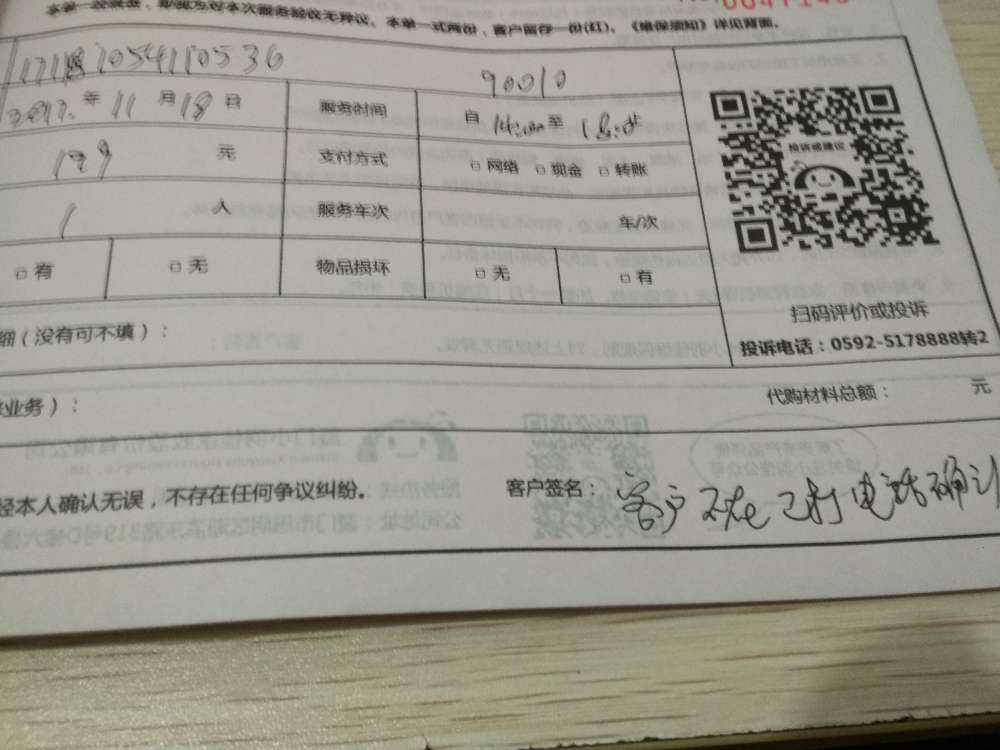 本单一经签金，即视为对本次服务验收无异议。本单一式两份，客户留存一份(红)。《维保须知》详见背面。
90010
年 11 月 18 日 服务时间 自 14:00 至
199 元 支付方式 □ 网络 □ 现金 □ 转账
1 人 服务车次 车/次
□ 有 □ 无 物品损坏 □ 无 □ 有
投诉或建议
扫码评价或投诉
投诉电话：0592-5178888转2
细（没有可不填）：
业务）： 代购材料总额： 元
经本人确认无误，不存在任何争议纠纷。 客户签名： 客户不在 已打电话确认